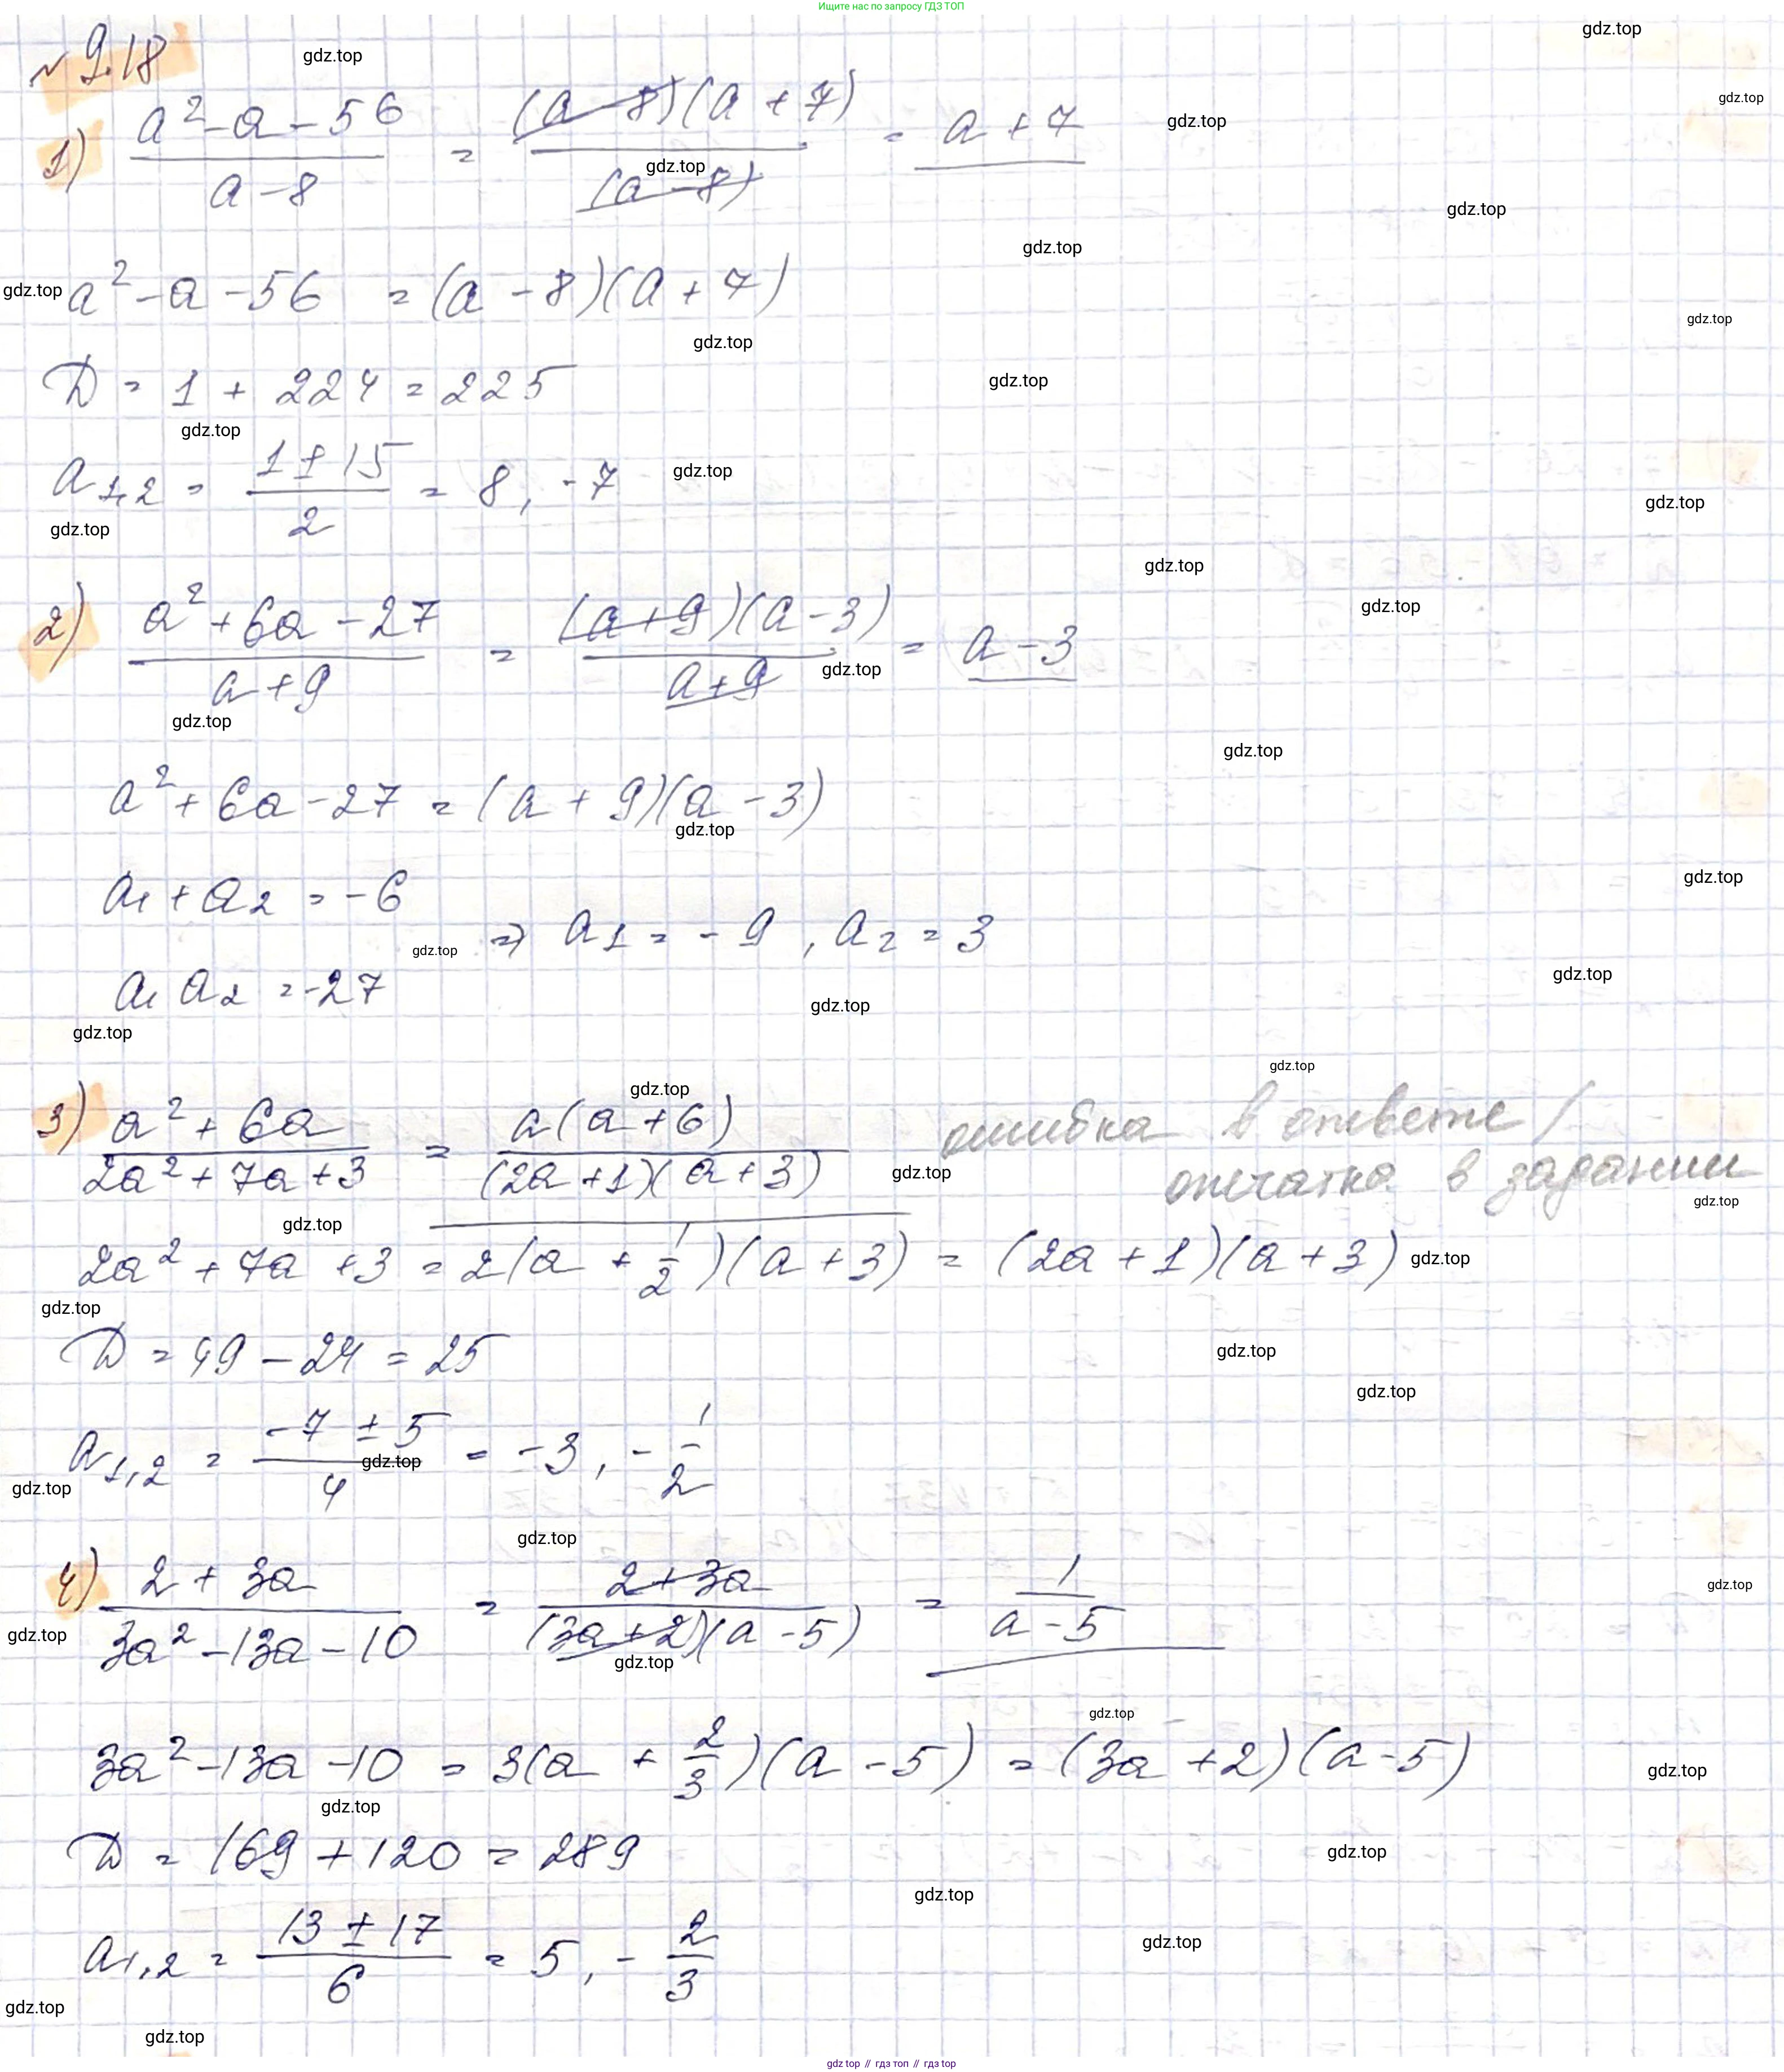 Ищите нас по запросу ГДЗ ТОП
№ 9.18
1) (a² - a - 56)/(a - 8) = ((a - 8)(a + 7))/(a - 8) = a + 7
a² - a - 56 = (a - 8)(a + 7)
D = 1 + 224 = 225
a₁,₂ = (1 ± 15)/2 = 8, -7
2) (a² + 6a - 27)/(a + 9) = ((a + 9)(a - 3))/(a + 9) = a - 3
a² + 6a - 27 = (a + 9)(a - 3)
a₁ + a₂ = -6
⇒ a₁ = -9, a₂ = 3
a₁ a₂ = -27
3) (a² + 6a)/(2a² + 7a + 3) = a(a + 6)/((2a + 1)(a + 3)) ошибка в ответе /
опечатка в задании
2a² + 7a + 3 = 2(a + 1/2)(a + 3) = (2a + 1)(a + 3)
D = 49 - 24 = 25
a₁,₂ = (-7 ± 5)/4 = -3, -1/2
4) (2 + 3a)/(3a² - 13a - 10) = (2 + 3a)/((3a + 2)(a - 5)) = 1/(a - 5)
3a² - 13a - 10 = 3(a + 2/3)(a - 5) = (3a + 2)(a - 5)
D = 169 + 120 = 289
a₁,₂ = (13 ± 17)/6 = 5, -2/3
gdz.top
gdz top // гдз топ // гдз top